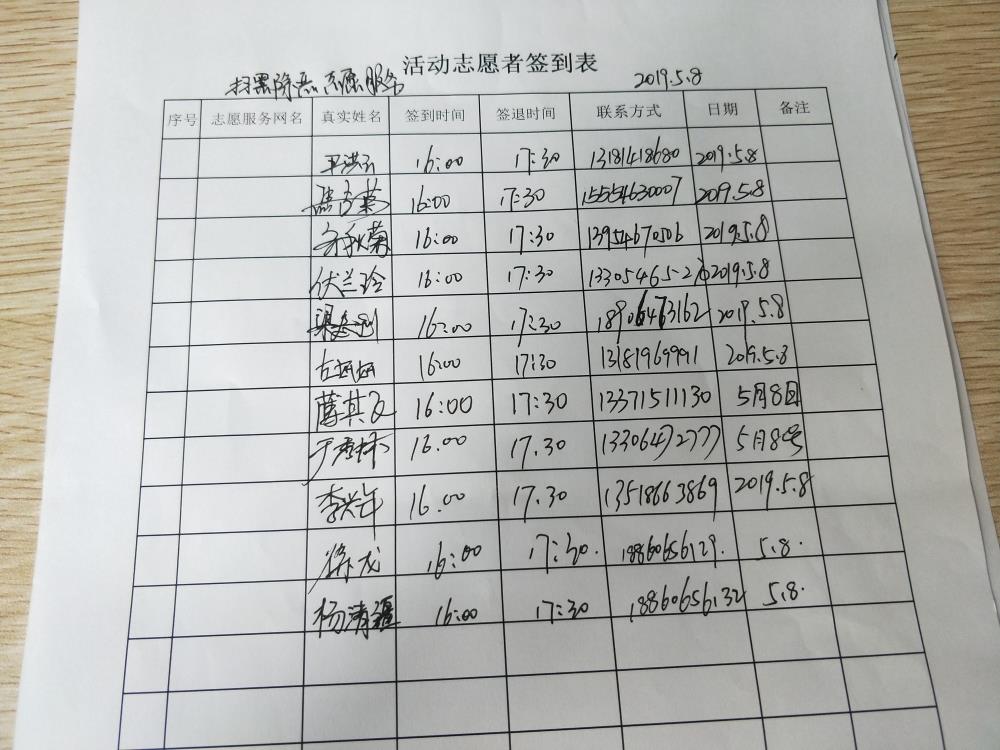 活动志愿者签到表
扫黑除恶志愿服务 2019.5.8
序号 志愿服务网名 真实姓名 签到时间 签退时间 联系方式 日期 备注
16:00 17:30 13181418680 2019.5.8
16:00 17:30 15554630007 2019.5.8
16:00 17:30 13954670506 2019.5.8
伏兰玲 16:00 17:30 2019.5.8
16:00 17:30 18906473162 2019.5.8
16:00 17:30 13181969991 2019.5.8
16:00 17:30 13371511130 5月8日
16.00 17.30 13306472777 5月8号
李兴年 16.00 17.30 13518663869 2019.5.8
16:00 17:30. 18860656129. 5.8.
杨清疆 16:00 17:30 18860656132 5.8.